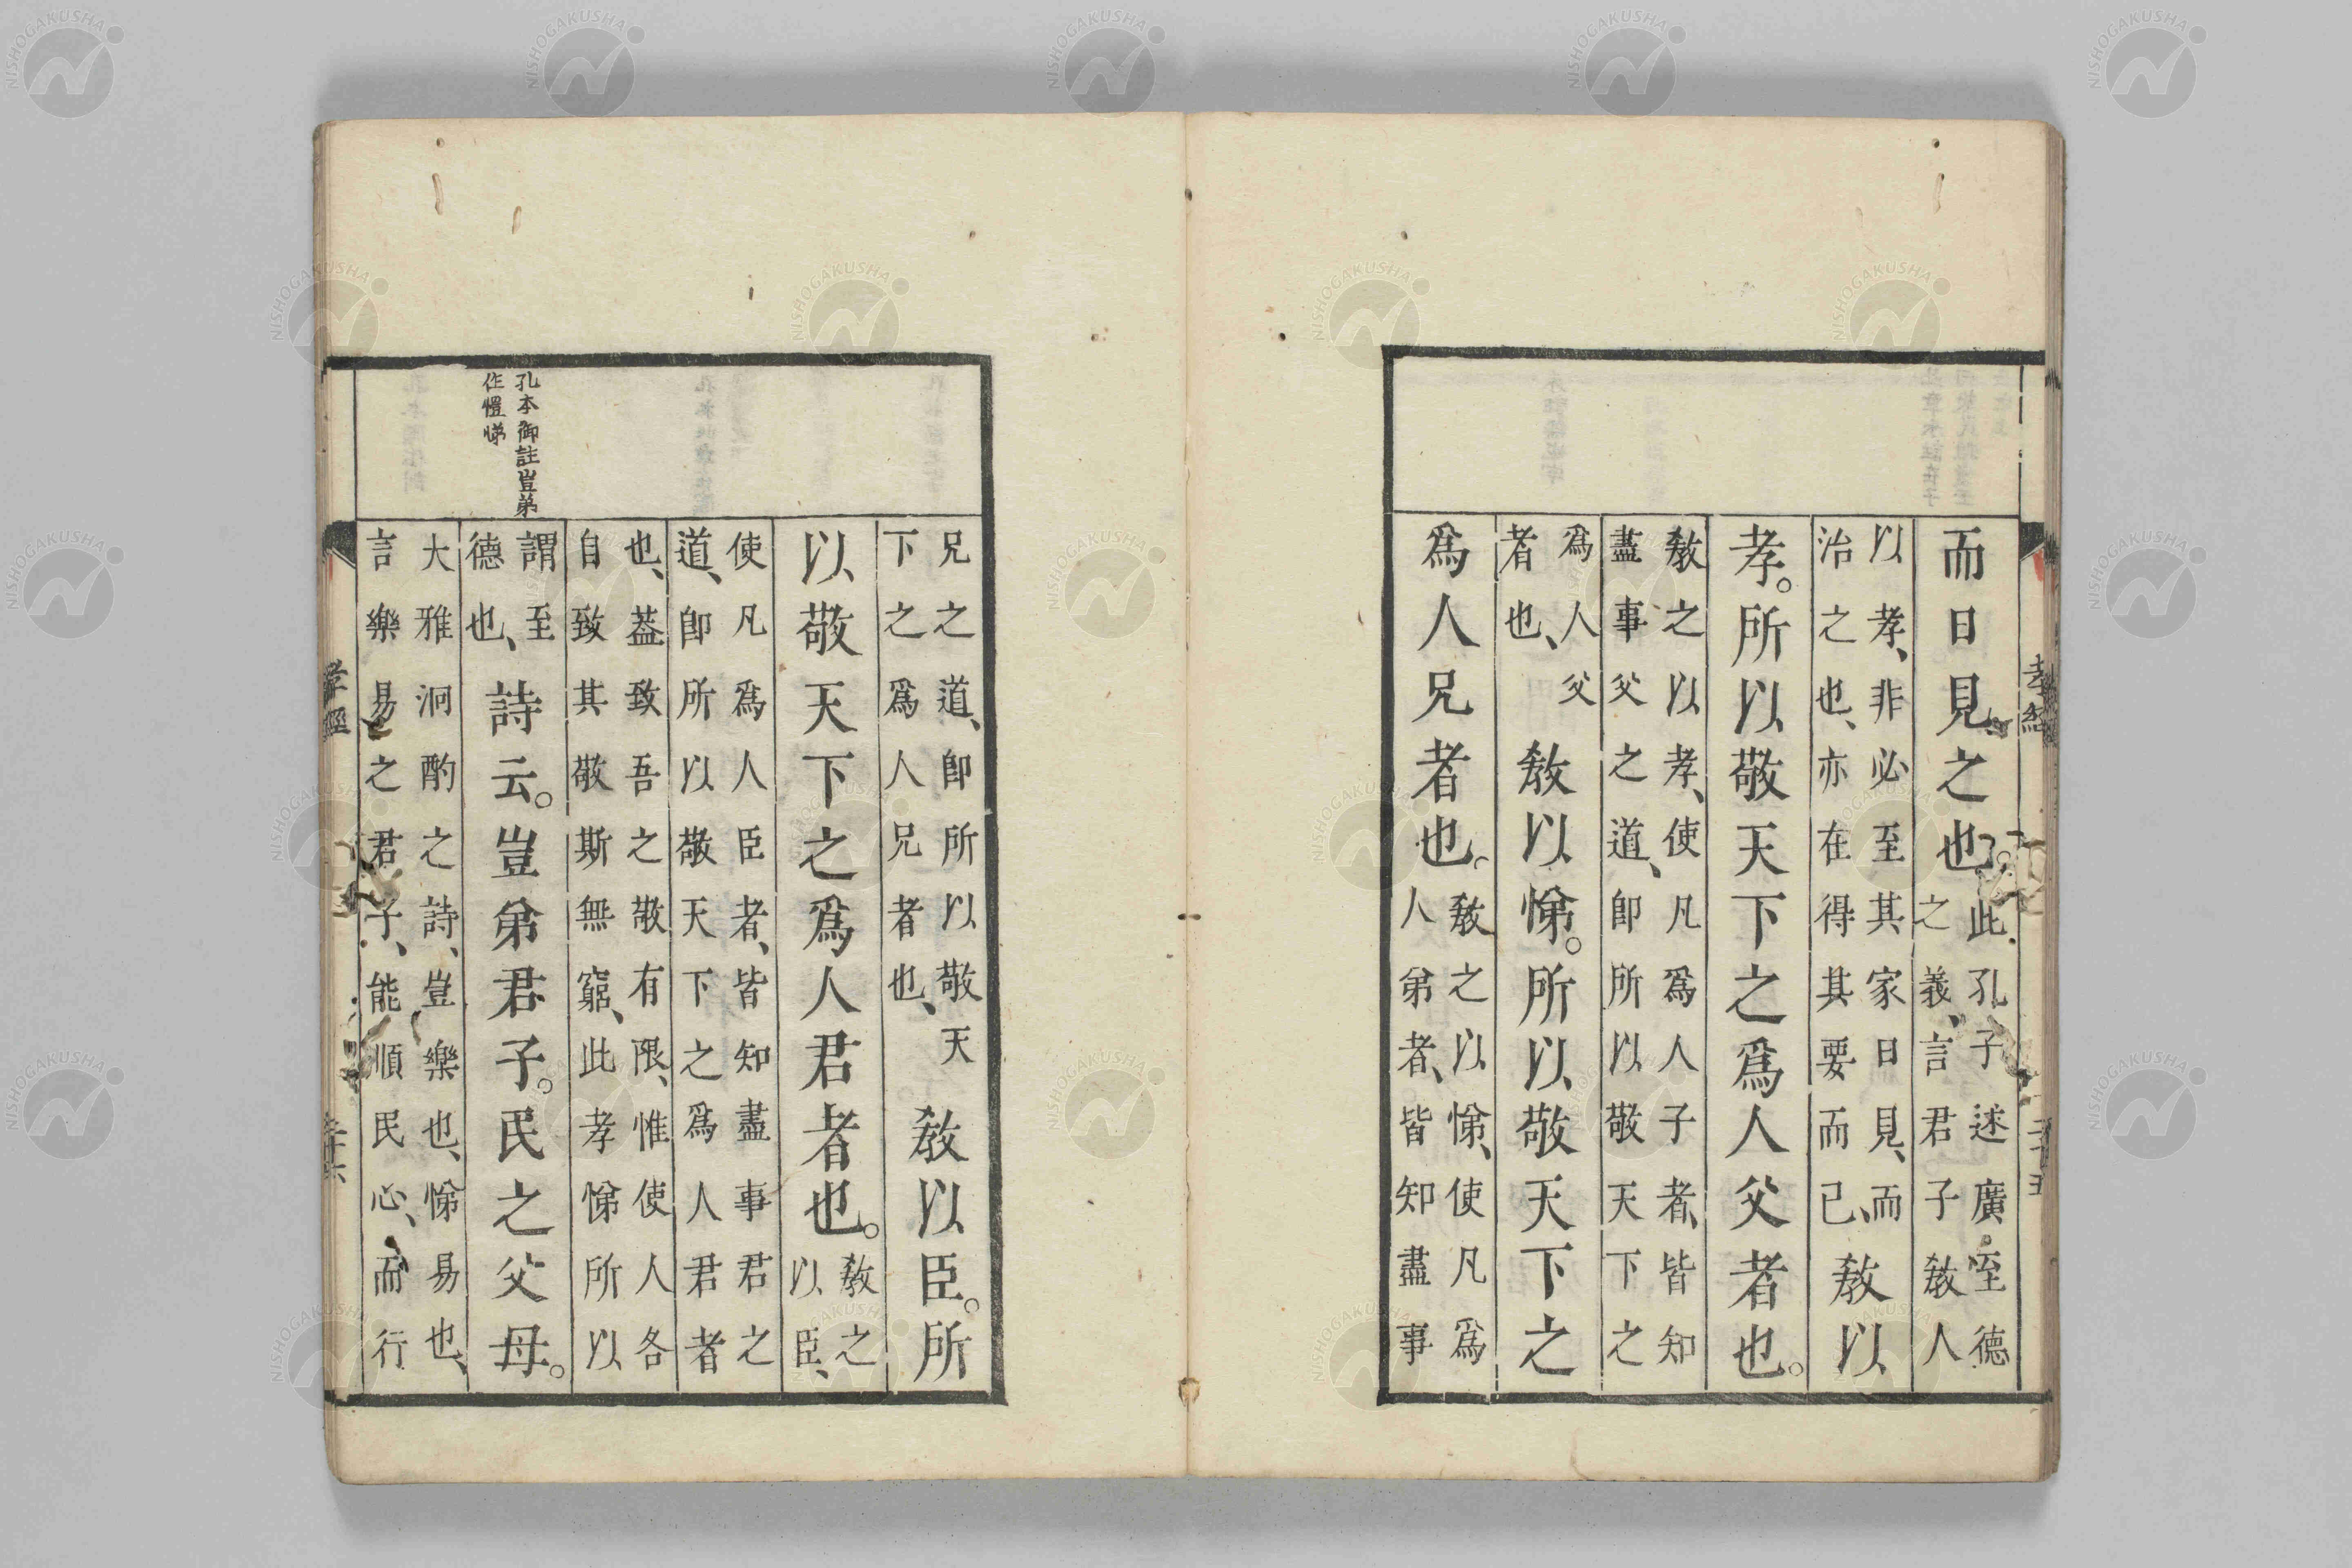 而日見之也。此孔子述廣至德
之義、言君子敎人
以孝、非必至其家日見、而
治之也、亦在得其要而已、敎以
孝。所以敬天下之爲人父者也。
敎之以孝、使凡爲人子者、皆知
盡事父之道、即所以敬天下之
爲人父
者也、敎以悌。所以敬天下之
爲人兄者也。敎之以悌、使凡爲
人弟者、皆知盡事
兄之道、即所以敬天
下之爲人兄者也、敎以臣。所
以敬天下之爲人君者也。敎之
以臣、
使凡爲人臣者、皆知盡事君之
道、即所以敬天下之爲人君者
也、葢致吾之敬有限、惟使人各
自致其敬斯無窮、此孝悌所以
謂至
德也、詩云。豈弟君子。民之父母。
大雅泂酌之詩、豈樂也、悌易也、
言樂易之君子、能順民心、而行
孔本御註豈弟
作愷悌
孝經
NISHOGAKUSHA